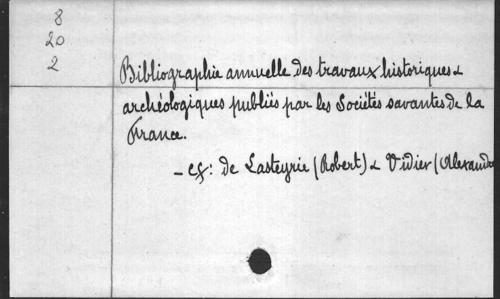 8
20
2
Bibliographie annuelle des travaux historiques &
archéologiques publiés par les Sociétés savantes de la
France.
– cf: de Lasteyrie (Robert) & Vidier (Alexandre